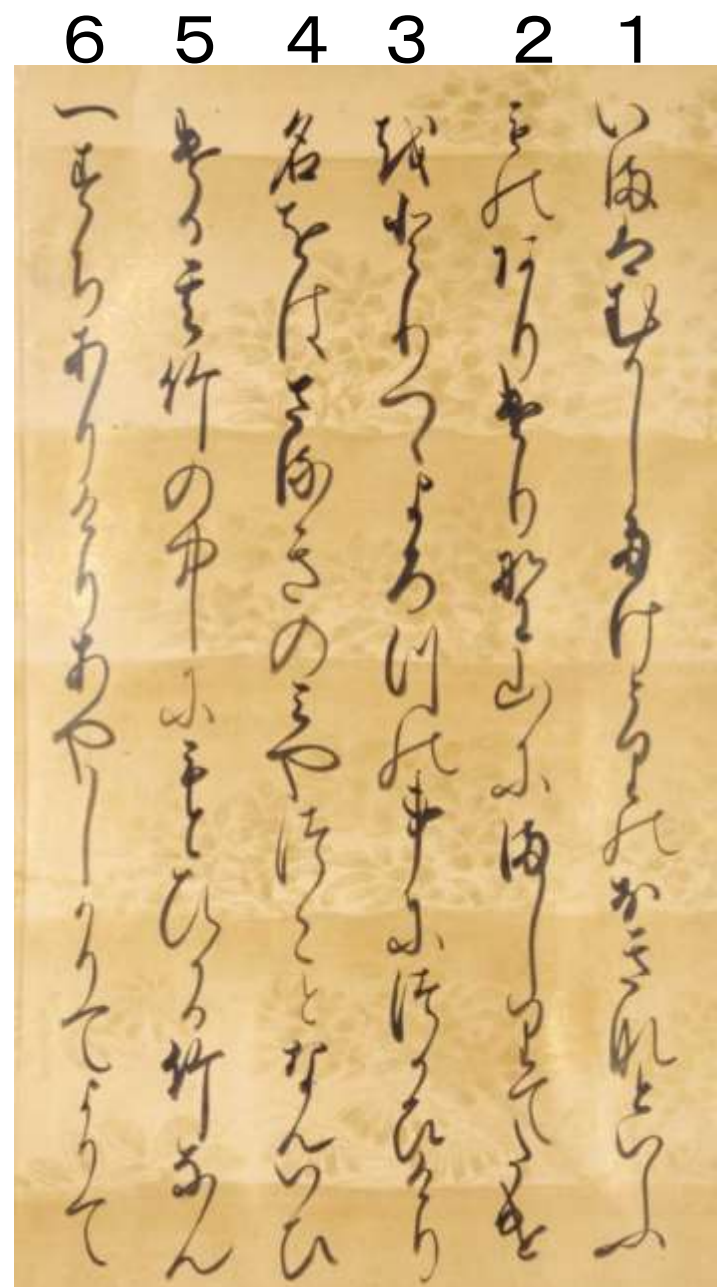 6 5 4 3 2 1
いまはむかしたけとりのおきなといふ
ものありけり野山にましりてたけ
をとりつゝよろつの事につかひけり
名をはさぬきのみやつことなんいひ
ける其竹の中にもとひかる竹なん
一すちありけりあやしかりてよりて